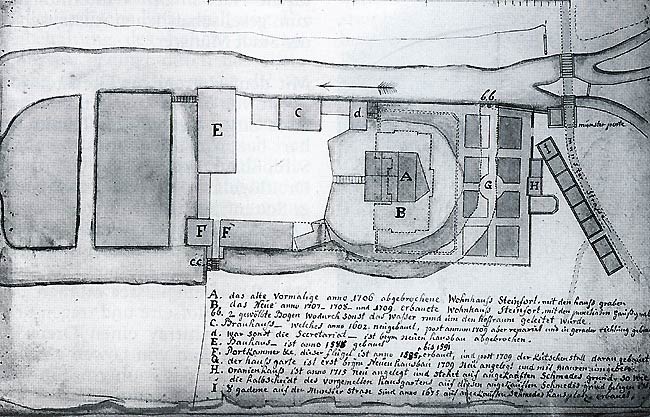 E
C
d
bb
münster porte
A
B
G
H
I
F
F
c.c.
A. das alte Vormalige anno 1706 abgebrochene Wohnhauß Steinforl. mit den hauß graben
B. das Neue anno 1707. 1708. und 1709 erbauete Wohnhauß Steinfort, mit den
bb. 2 gewölbte Bogen wodurch sonst das waßer rund um den Hoffraum geleitet wurde
C. Brauhauß welches anno 1602 neugebauet, post annum 1709 aber repariret und in gerader richtung gebauet
d. war sonst die Secretariat ist beym neuen hausbau abgebrochen.
E. Bauhauß ist anno gebauet bis 1591
F. Portkammer &c dieser flügel ist anno erbauet, und post 1709 der Kuttschen stall daran gebauet
der haußgarte ist erst beym Neuen haußbau 1709 Neu angelegt und mit Mauren umgeben
H. Oranienhauß ist anno 1715 neu angelegt und stehet auf angekauften Schmedes grunde. so wie
die halbscheidt des vorgemelten hausgartens auf diesen angekauften Schmedes grund belegen ist
I. 8 gademe auf der Münster Straße sind anno 1675 auf angekauften Schmedes hausplatz erbauet